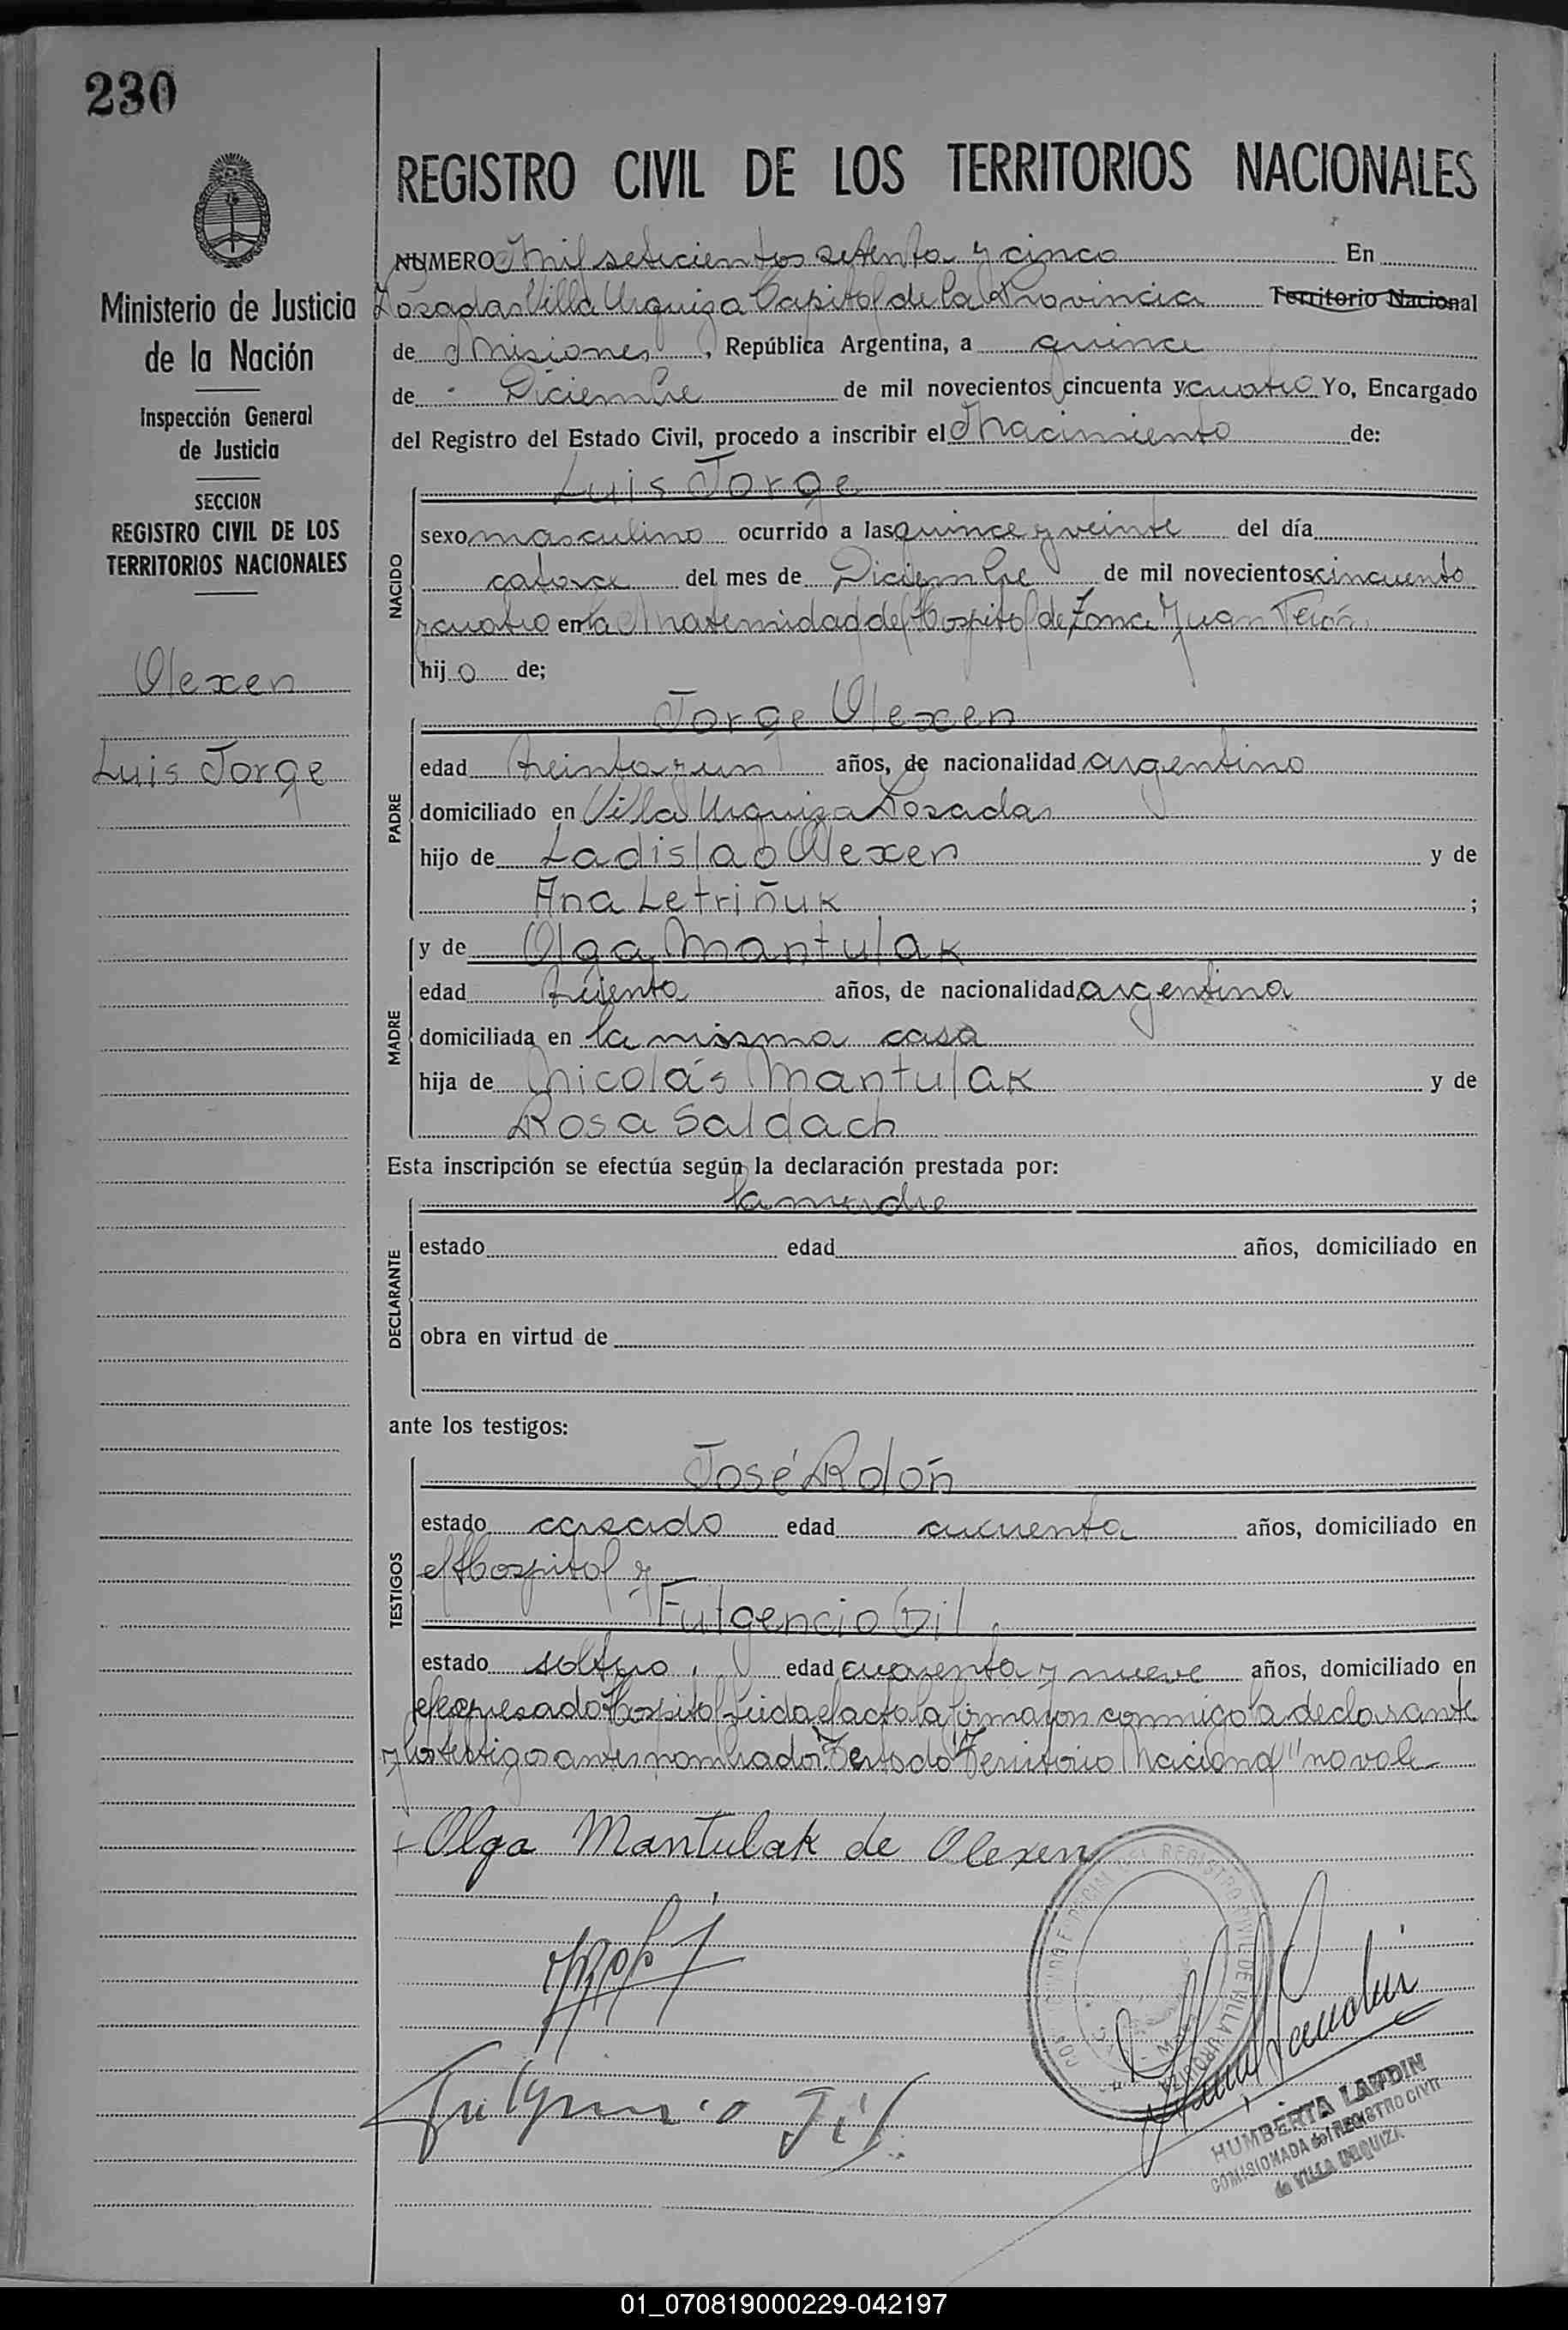 230
REGISTRO CIVIL DE LOS TERRITORIOS NACIONALES
NUMERO Mil setecientos setenta y cinco En
Posadas Villa Urquiza Capital de la Provincia Territorio Nacional
de Misiones, República Argentina, a quince
de Diciembre de mil novecientos cincuenta y cuatro Yo, Encargado
del Registro del Estado Civil, procedo a inscribir el Nacimiento de:
Ministerio de Justicia
de la Nación
Inspección General
de Justicia
SECCION
REGISTRO CIVIL DE LOS
TERRITORIOS NACIONALES
Olexen
Luis Jorge
NACIDO
Luis Jorge
sexo masculino ocurrido a las quince y veinte del día
catorce del mes de Diciembre de mil novecientos cincuenta
y cuatro en la Maternidad del Hospital de Zona Juan Perón
hijo de;
PADRE
Jorge Olexen
edad treinta y un años, de nacionalidad argentino
domiciliado en Villa Urquiza Posadas
hijo de Ladislao Olexen y de
Ana Letriñuk ;
MADRE
y de Olga Mantulak
edad treienta años, de nacionalidad argentina
domiciliada en la misma casa
hija de Nicolás Mantulak y de
Rosa Saldach
Esta inscripción se efectúa según la declaración prestada por:
DECLARANTE
la madre
estado edad años, domiciliado en
obra en virtud de
ante los testigos:
TESTIGOS
José Rolón
estado casado edad años, domiciliado en
el Hospital y
Fulgencio Gil
estado soltero, edad cuarenta y nueve años, domiciliado en
el expresado Hospital Leida el acta la firmaron conmigo la declarante
y los testigos antes nombrados. Testado "Territorio Nacional" no vale
Olga Mantulak de Olexen
Fulgencio Gil
REGISTRO CIVIL DE VILLA URQUIZA
HUMBERTA LANDIN
COMISIONADA del REGISTRO CIVIL
de VILLA URQUIZA
01_070819000229-042197